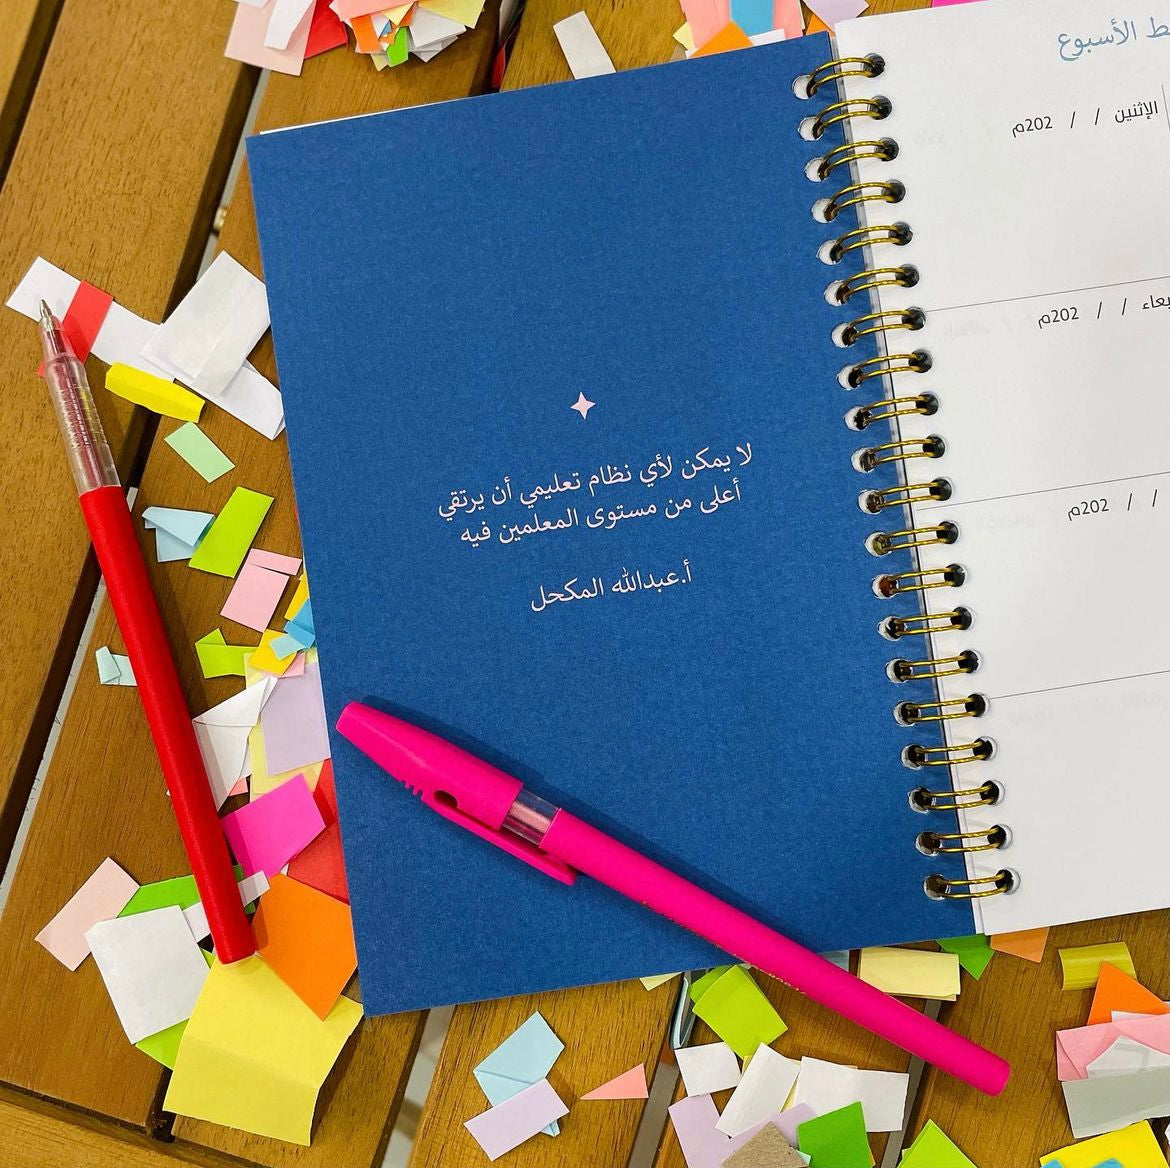 لا يمكن لأي نظام تعليمي أن يرتقي
أعلى من مستوى المعلمين فيه
أ.عبدالله المكحل
الأسبوع
الإثنين / / 202م
/ / 202م
/ / 202م